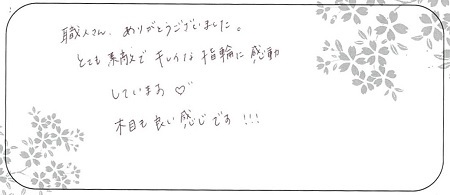 職人さん、ありがとうございました。
とても素敵でキレイな指輪に感動
しています♡
木目も良い感じです!!!